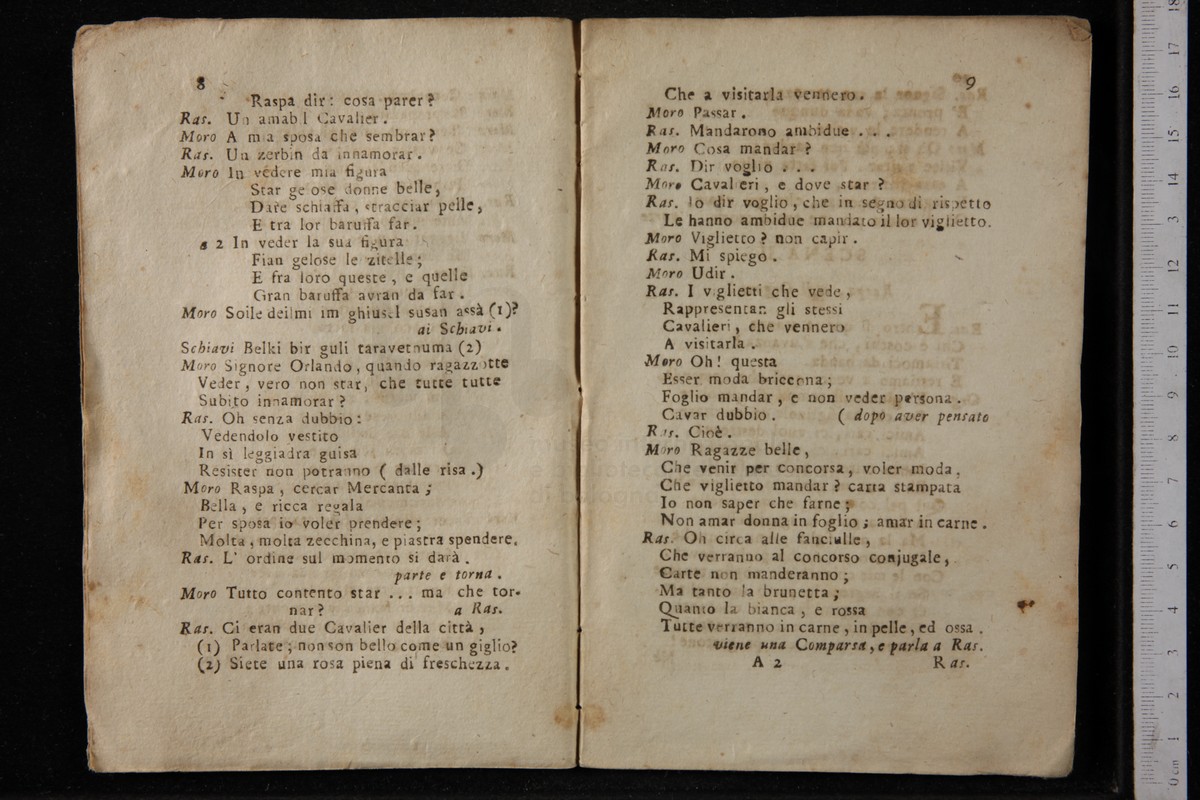 8
Raspa dir: cosa parer?
Ras. Un amabl Cavalier.
Moro A mia sposa che sembrar?
Ras. Un zerbin da innamorar.
Moro In vedere mia figura
Star gelose donne belle,
Dare schiaffa, stracciar pelle,
E tra lor baruffa far.
a 2 In veder la sua figura
Fian gelose le zitelle;
E fra loro queste, e quelle
Gran baruffa avran da far.
Moro Soile deilmi im ghiusel susan assà (1)?
ai Schiavi.
Schiavi Belki bir guli taravetnuma (2)
Moro Signore Orlando, quando ragazzotte
Veder, vero non star, che tutte tutte
Subito innamorar?
Ras. Oh senza dubbio:
Vedendolo vestito
In sì leggiadra guisa
Resister non potranno ( dalle risa.)
Moro Raspa, cercar Mercanta;
Bella, e ricca regala
Per sposa io voler prendere;
Molta, molta zecchina, e piastra spendere.
Ras. L' ordine sul momento si darà.
parte e torna.
Moro Tutto contento star ... ma che tor-
nar? a Ras.
Ras. Ci eran due Cavalier della città,
(1) Parlate; non son bello come un giglio?
(2) Siete una rosa piena di freschezza.
9
Che a visitarla vennero.
Moro Passar.
Ras. Mandarono ambidue . . .
Moro Cosa mandar?
Ras. Dir voglio . . .
Moro Cavalieri, e dove star?
Ras. Io dir voglio, che in segno di rispetto
Le hanno ambidue mandato il lor viglietto.
Moro Viglietto? non capir.
Ras. Mi spiego.
Moro Udir.
Ras. I viglietti che vede,
Rappresentan gli stessi
Cavalieri, che vennero
A visitarla.
Moro Oh! questa
Esser moda briccona;
Foglio mandar, e non veder persona.
Cavar dubbio. ( dopo aver pensato
Ras. Cioè.
Moro Ragazze belle,
Che venir per concorsa, voler moda,
Che viglietto mandar? carta stampata
Io non saper che farne;
Non amar donna in foglio; amar in carne.
Ras. Oh circa alle fanciulle,
Che verranno al concorso conjugale,
Carte non manderanno;
Ma tanto la brunetta;
Quanto la bianca, e rossa
Tutte verranno in carne, in pelle, ed ossa.
viene una Comparsa, e parla a Ras.
A 2 Ras.